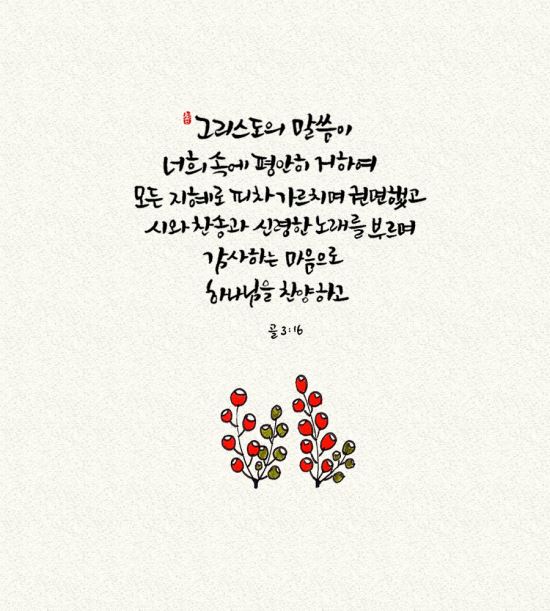 그리스도의 말씀이
너희 속에 평안히 거하여
모든 지혜로 피차 가르치며 권면하고
시와 찬송과 신령한 노래를 부르며
감사하는 마음으로
하나님을 찬양하고
골 3:16